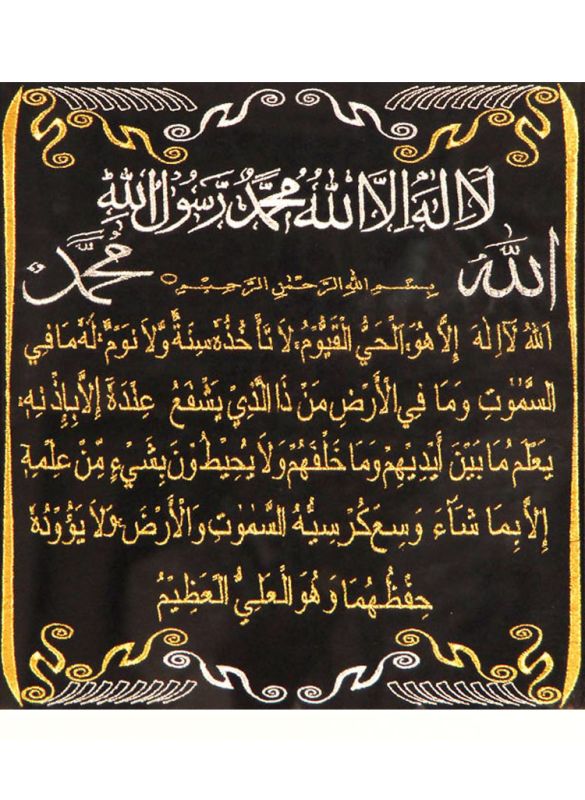 لَا اِلٰهَ اِلَّا اللّٰهُ مُحَمَّدٌ رَسُوْلُ اللّٰهِ
اللّٰه
مُحَمَّد
بِسْمِ اللهِ الرَّحْمٰنِ الرَّحِيْمِ
اَللهُ لَآ اِلٰهَ اِلَّا هُوَ اَلْحَيُّ الْقَيُّوْمُ لَا تَأْخُذُهٗ سِنَةٌ وَّلَا نَوْمٌ لَهٗ مَا فِي
السَّمٰوٰتِ وَمَا فِي الْأَرْضِ مَنْ ذَا الَّذِيْ يَشْفَعُ عِنْدَهٗ إِلَّا بِإِذْنِهٖ
يَعْلَمُ مَا بَيْنَ أَيْدِيْهِمْ وَمَا خَلْفَهُمْ وَلَا يُحِيْطُوْنَ بِشَيْءٍ مِّنْ عِلْمِهٖ
إِلَّا بِمَا شَآءَ وَسِعَ كُرْسِيُّهُ السَّمٰوٰتِ وَالْأَرْضَ وَلَا يَؤُوْدُهٗ
حِفْظُهُمَا وَهُوَ الْعَلِيُّ الْعَظِيْمُ